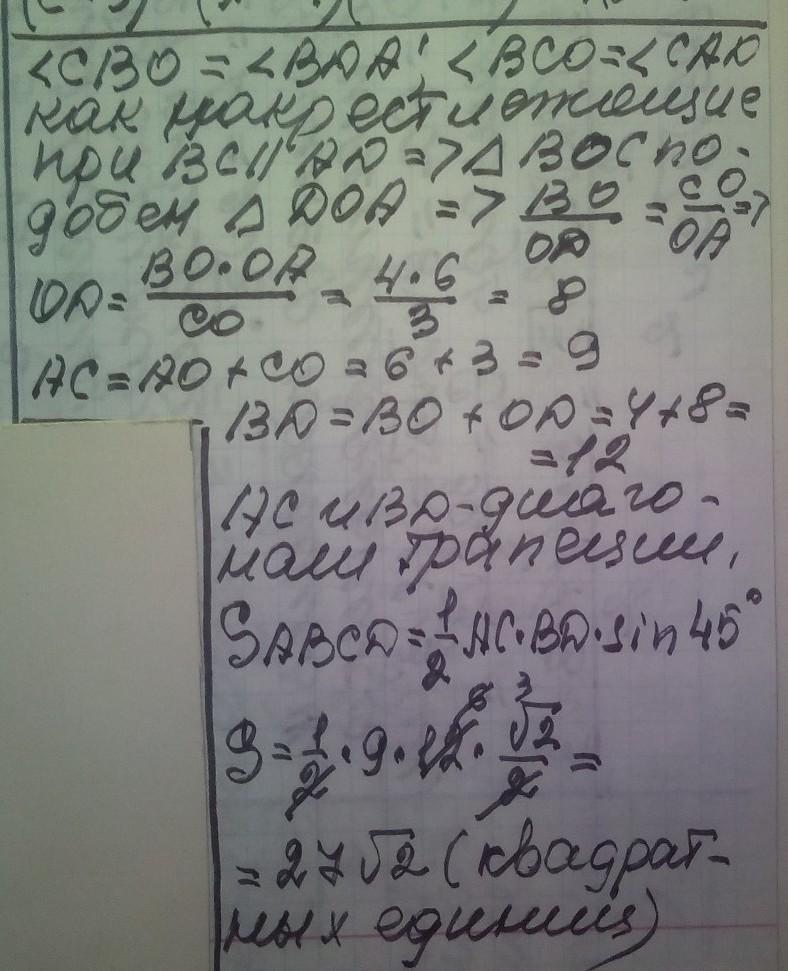 <CBO = <BDA; <BCO=<CAD
как накрест лежащие
при BC||AD => △ BOC по-
добен △ DOA => BO/OD = CO/OA =>
OD = BO·OA/CO = 4·6/3 = 8
AC = AO + CO = 6 + 3 = 9
BD = BO + OD = 4+8=
=12
AC и BD - диаго-
нали трапеции,
SABCD = 1/2 AC·BD·sin 45°
S = 1/2 · 9 · 12 6 3 · √2/2 =
= 27√2 (квадрат-
ных единиц)